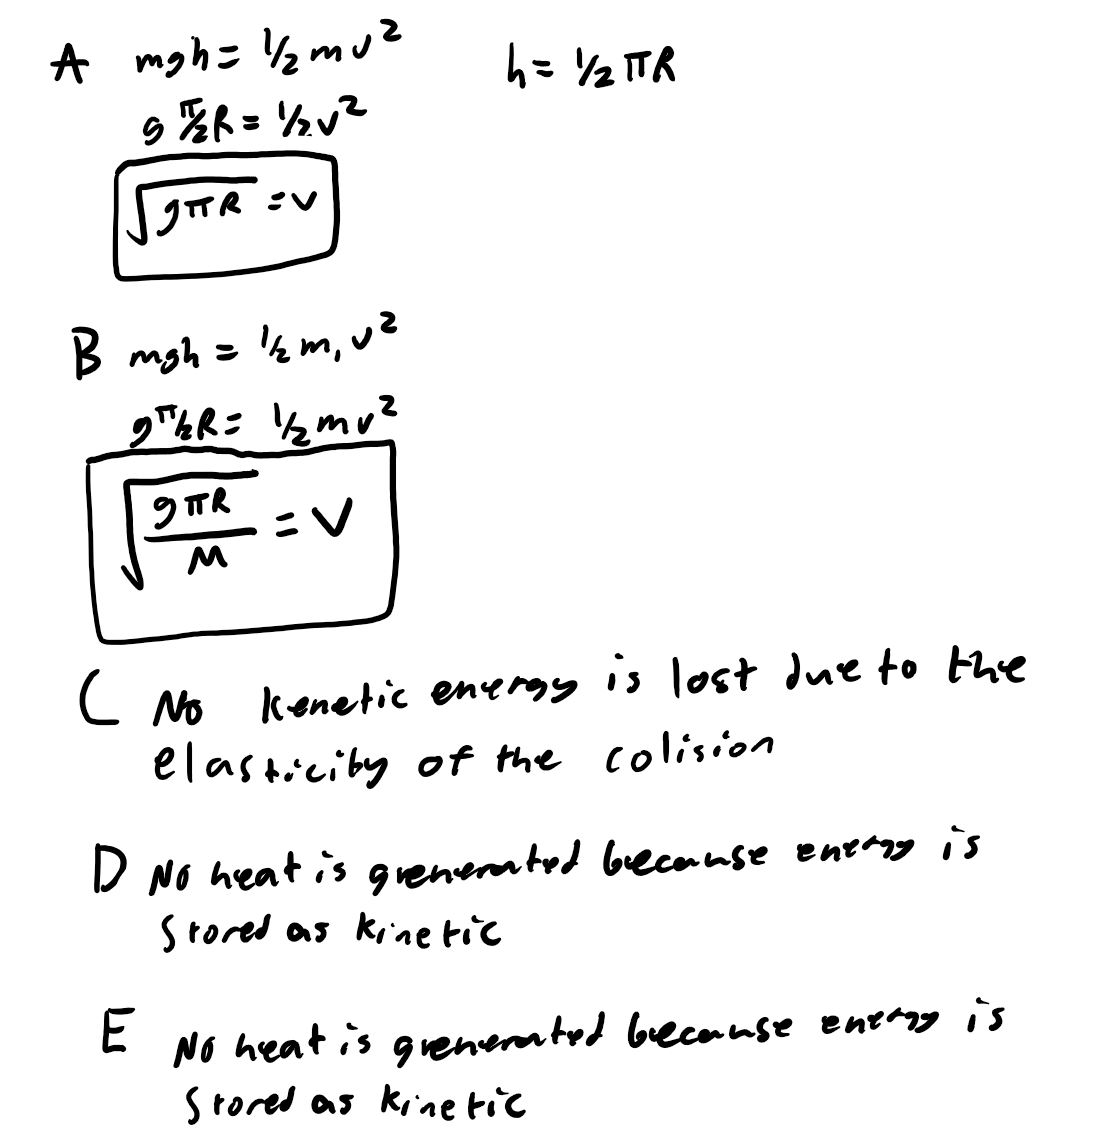 A mgh = 1/2 m v² h = 1/2 πR
g π/2 R = 1/2 v²
√gπR = v
B mgh = 1/2 m, v²
g π/2 R = 1/2 m v²
√(gπR/M) = V
C No kenetic energy is lost due to the
elasticity of the colision
D No heat is generated because energy is
stored as kinetic
E No heat is generated because energy is
stored as kinetic